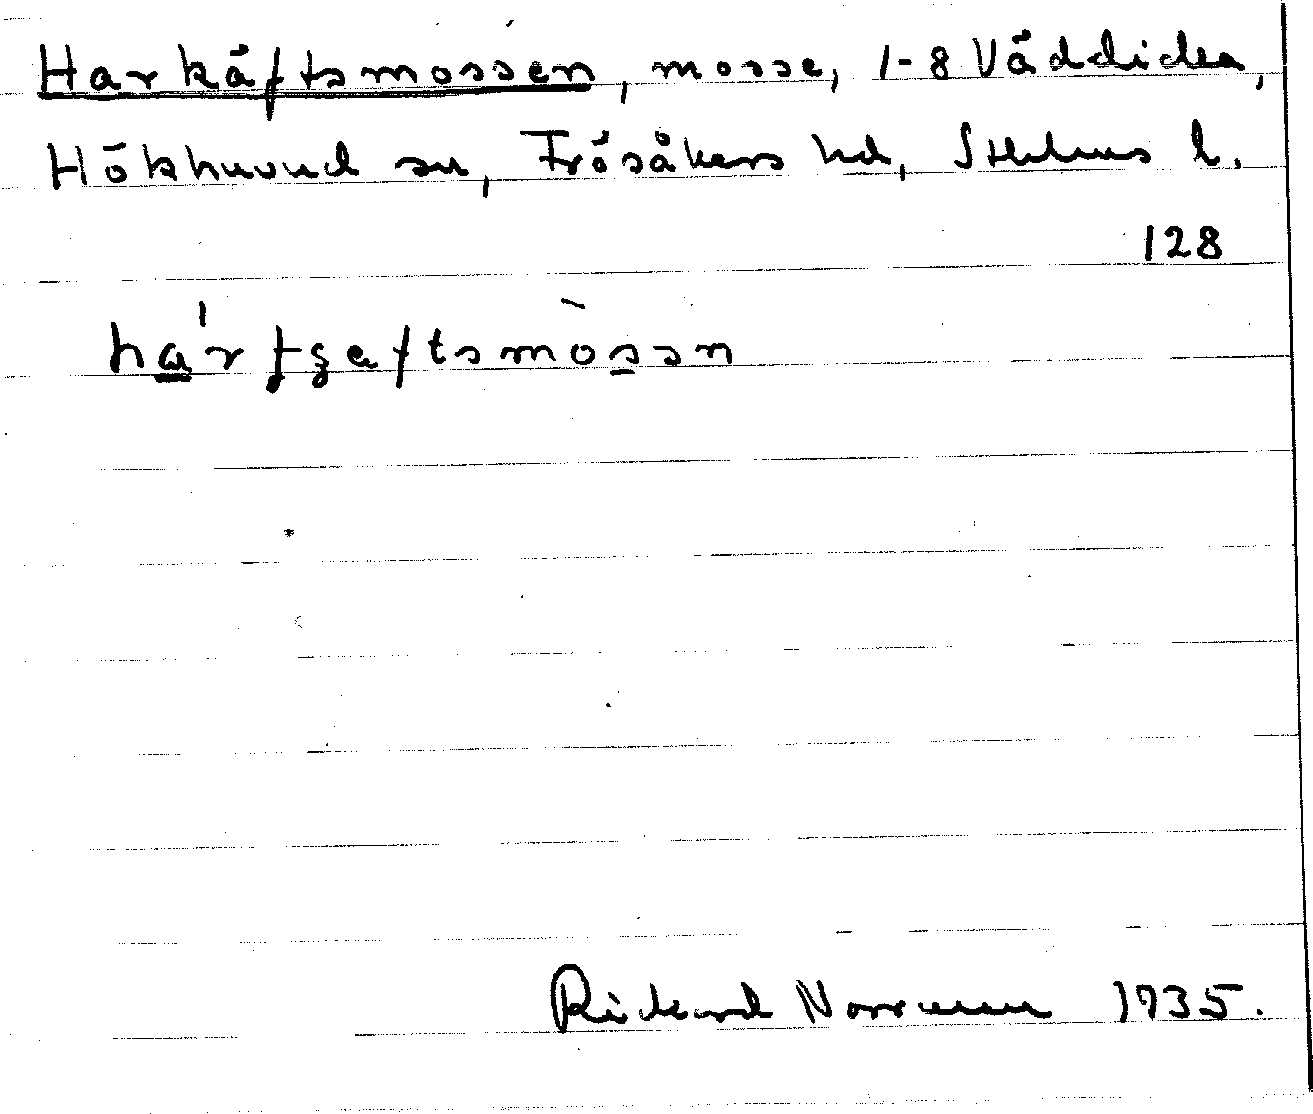 Harkäftsmossen, mosse, 1-8 Väddika,
Hökhuvud sn, Frösåkers hd, Sthlms l.
128
ha'rtʒeftsmòssn
Rickard Norrman 1935.